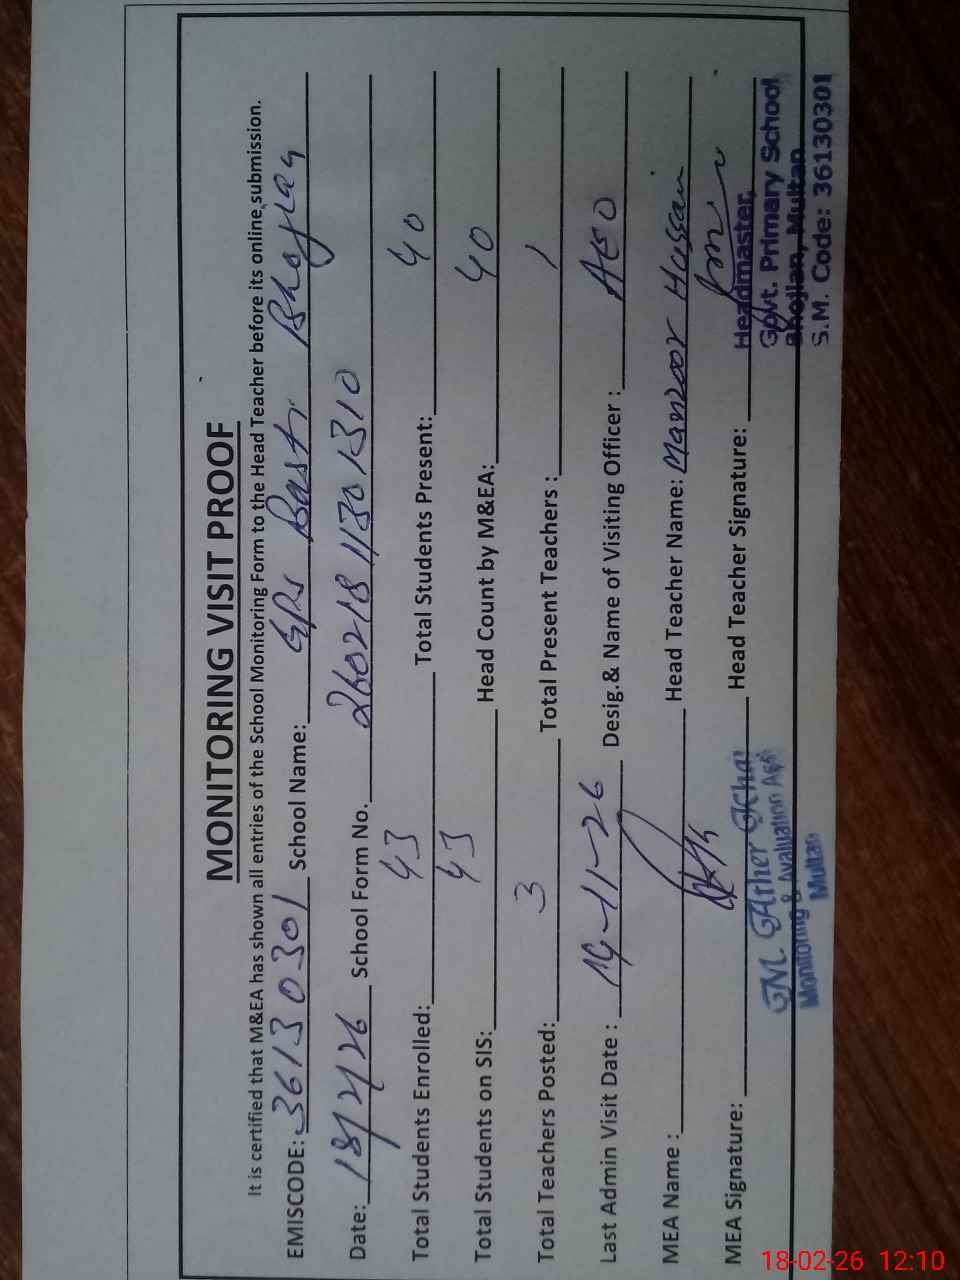 MONITORING VISIT PROOF
It is certified that M&EA has shown all entries of the School Monitoring Form to the Head Teacher before its online submission.
EMISCODE: 36130301 School Name: GPS Basti Bhojian
Date: 18/2/26 School Form No. 260218 1130 1310
Total Students Enrolled: 43 Total Students Present: 40
Total Students on SIS: 43 Head Count by M&EA: 40
Total Teachers Posted: 3 Total Present Teachers : 1
Last Admin Visit Date : -11-26 Desig.& Name of Visiting Officer : AEO
MEA Name : Head Teacher Name: Manzoor Hussain
MEA Signature: Head Teacher Signature:
M. Ather Khan
Monitoring & Evaluation Assi
Multan
Headmaster,
Govt. Primary School
Bhojian, Multan
S.M. Code: 36130301
18-02-26 12:10